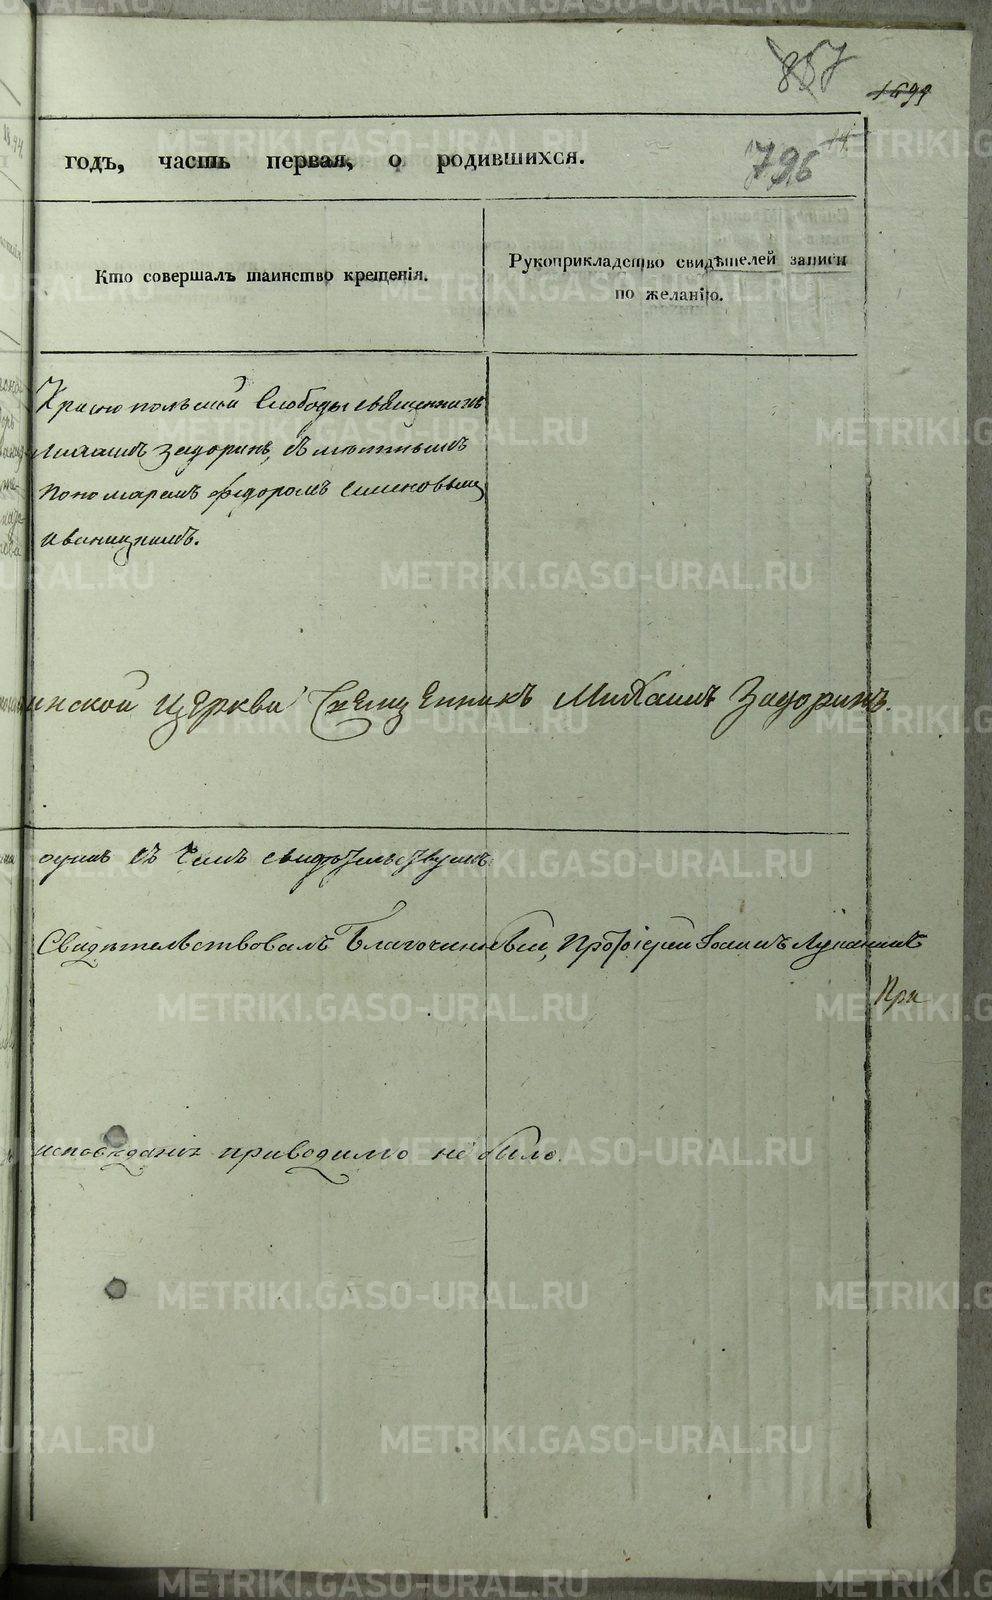 857
1699
14.
796
годъ, часть первая, о родившихся.
Кто совершалъ таинство крещенія.
Рукоприкладство свидѣтелей записи
по желанію.
Краснопольской Слободы священникъ
Михаилъ Задоринъ, съ мѣстнымъ
Пономаремъ Федоромъ Симеоновымъ
Иваницкимъ.
инской церкви Священникъ Михаилъ Задоринъ.
одимъ въ чемъ свидѣтельствуемъ
Свидѣтельствовалъ Благочинный, Протоіерей Іоаннъ Луканинъ
При
исповѣданіи приводимо не было.
METRIKI.GASO-URAL.RU